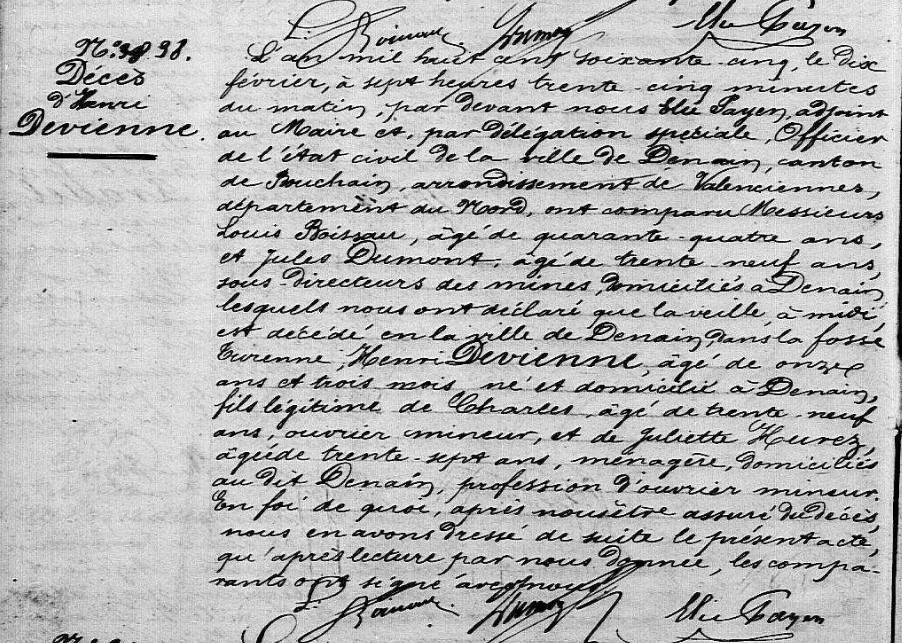 L. Boisseau Dumont Elie Fayen
N°: 38 38.
Décès
d'Henri
Devienne.
L'an mil huit cent soixante-cinq, le dix
février, à sept heures trente-cinq minutes
du matin, par devant nous Elie Fayen, adjoint
au Maire et, par délégation spéciale, Officier
de l'état civil de la ville de Denain, canton
de Bouchain, arrondissement de Valenciennes,
département du Nord, ont comparu Messieurs
Louis Boisseau, âgé de quarante-quatre ans,
et Jules Dumont, âgé de trente-neuf ans,
sous-directeurs des mines, domiciliés à Denain,
lesquels nous ont déclaré que la veille, à midi,
est décédé, en la ville de Denain, dans la fosse
Turenne, Henri Devienne, âgé de onze
ans et trois mois, né et domicilié à Denain,
fils légitime de Charles, âgé de trente-neuf
ans, ouvrier mineur, et de Juliette Heurez,
âgée de trente-sept ans, ménagère, domiciliés
au dit Denain, profession d'ouvrier mineur.
En foi de quoi, après nous être assuré du décès,
nous en avons dressé de suite le présent acte,
qu'après lecture par nous donnée, les compa-
rants ont signé avec nous.
L. Boisseau Dumont Elie Fayen